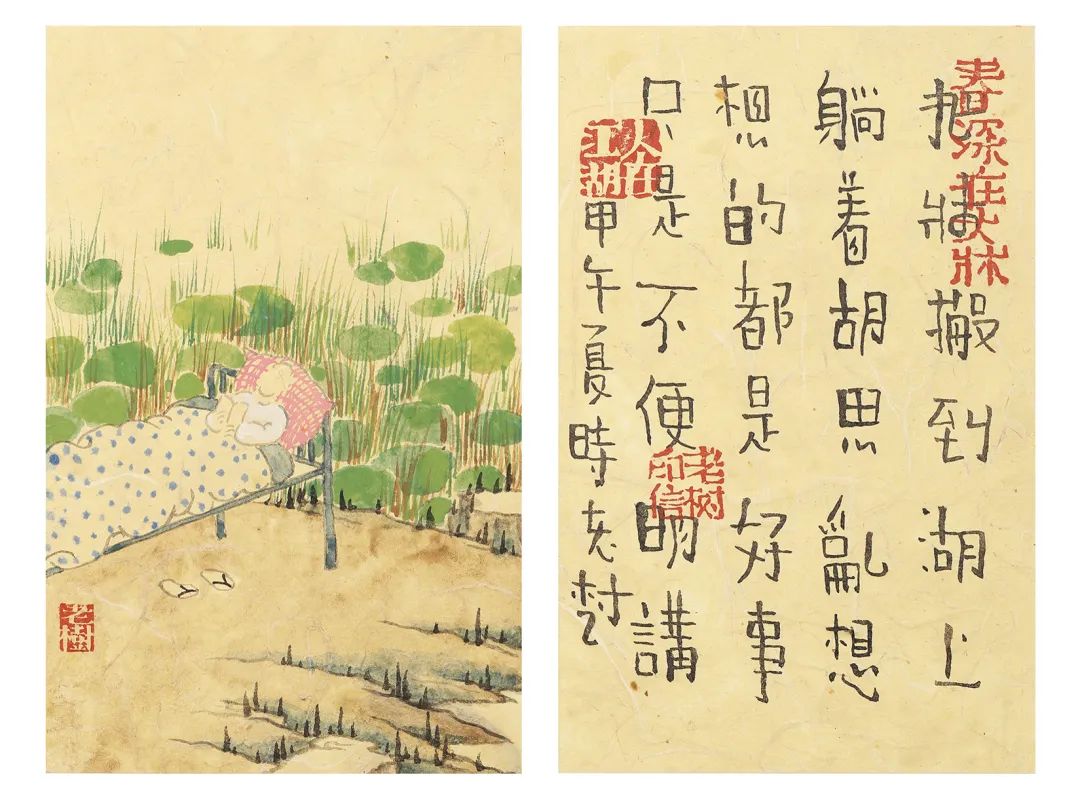 把牀搬到湖上
躺着胡思亂想
想的都是好事
只是不便明講
甲午夏時老树
春深在大牀
人在江湖
老树印信
老樹